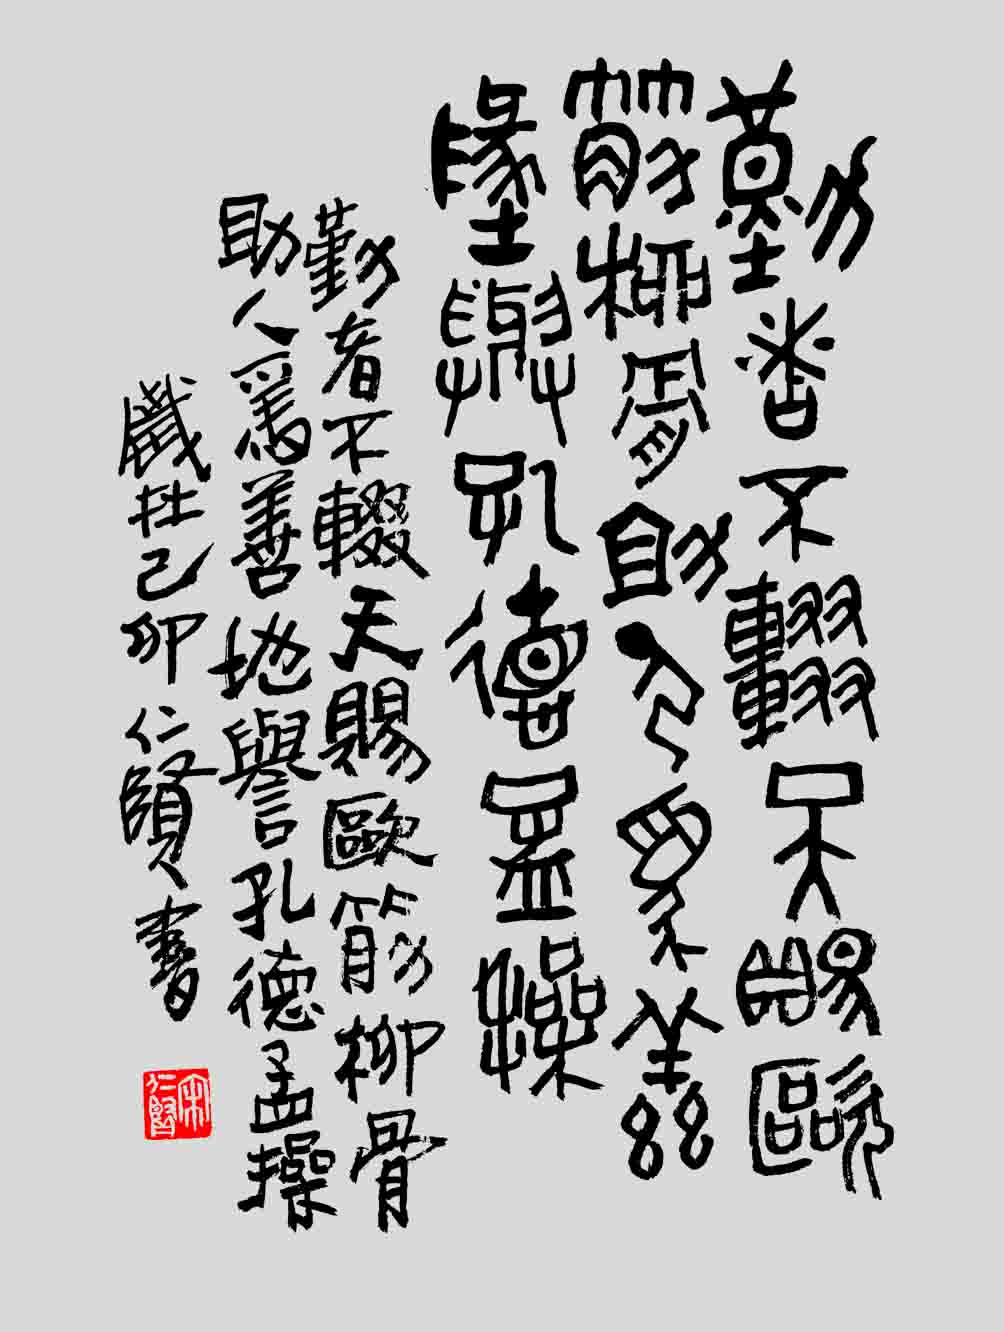 勤者不輟天賜歐
筋柳骨助人爲善
地譽孔德孟操
勤者不輟天賜歐筋柳骨
助人爲善地譽孔德孟操
歲在己卯仁賢書
宋仁賢